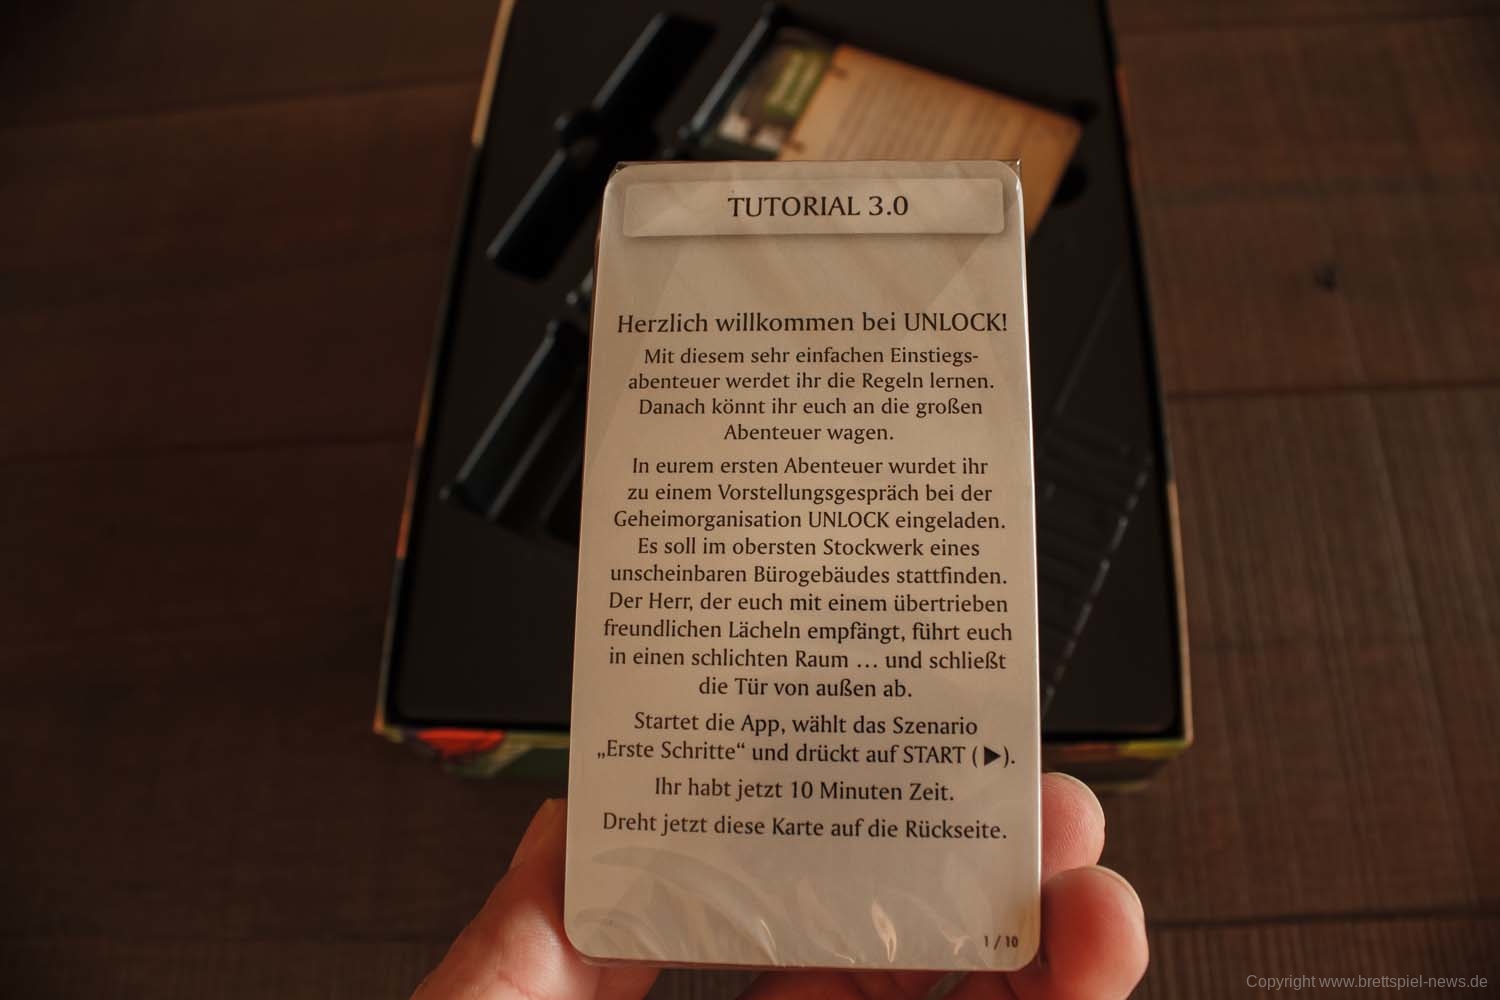 TUTORIAL 3.0
Herzlich willkommen bei UNLOCK!
Mit diesem sehr einfachen Einstiegs-
abenteuer werdet ihr die Regeln lernen.
Danach könnt ihr euch an die großen
Abenteuer wagen.
In eurem ersten Abenteuer wurdet ihr
zu einem Vorstellungsgespräch bei der
Geheimorganisation UNLOCK eingeladen.
Es soll im obersten Stockwerk eines
unscheinbaren Bürogebäudes stattfinden.
Der Herr, der euch mit einem übertrieben
freundlichen Lächeln empfängt, führt euch
in einen schlichten Raum … und schließt
die Tür von außen ab.
Startet die App, wählt das Szenario
„Erste Schritte“ und drückt auf START (▶).
Ihr habt jetzt 10 Minuten Zeit.
Dreht jetzt diese Karte auf die Rückseite.
1 / 10
Copyright www.brettspiel-news.de